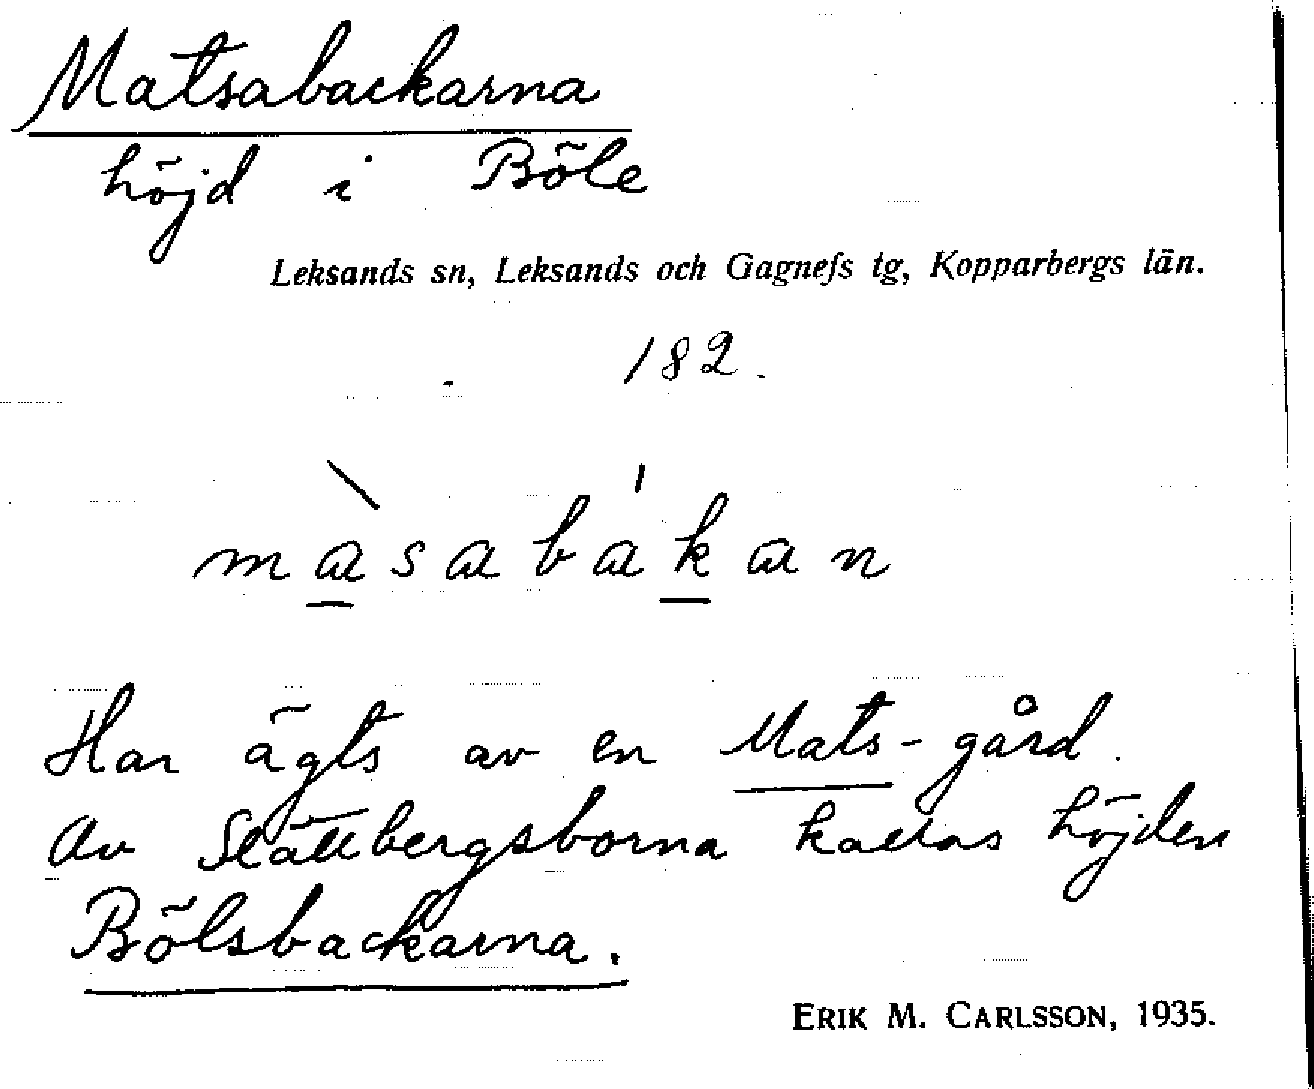 Matsabackarna
höjd i Böle
Leksands sn, Leksands och Gagnefs tg, Kopparbergs län.
182.
màsabákan
Har ägts av en Mats-gård.
Av Slättbergsborna kallas höjden
Bölsbackarna.
ERIK M. CARLSSON, 1935.